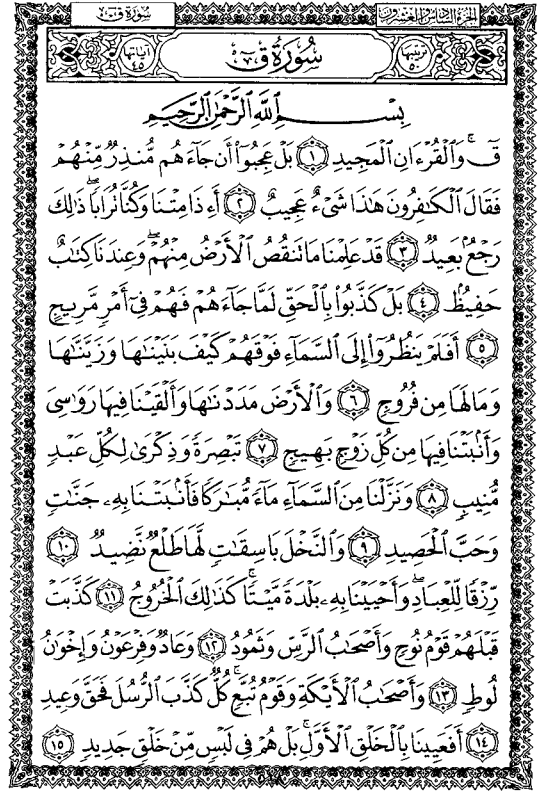 الجزء السادس والعشرون سورة ق
ترتيبها ٥٠ سُورَةُ ق آياتها ٤٥
بِسْمِ ٱللَّهِ ٱلرَّحْمَٰنِ ٱلرَّحِيمِ
قٓۚ وَٱلْقُرْءَانِ ٱلْمَجِيدِ ١ بَلْ عَجِبُوٓا۟ أَن جَآءَهُم مُّنذِرٌ مِّنْهُمْ
فَقَالَ ٱلْكَٰفِرُونَ هَٰذَا شَىْءٌ عَجِيبٌ ٢ أَءِذَا مِتْنَا وَكُنَّا تُرَابًاۖ ذَٰلِكَ
رَجْعٌۢ بَعِيدٌ ٣ قَدْ عَلِمْنَا مَا تَنقُصُ ٱلْأَرْضُ مِنْهُمْۖ وَعِندَنَا كِتَٰبٌ
حَفِيظٌۢ ٤ بَلْ كَذَّبُوا۟ بِٱلْحَقِّ لَمَّا جَآءَهُمْ فَهُمْ فِىٓ أَمْرٍ مَّرِيجٍ
٥ أَفَلَمْ يَنظُرُوٓا۟ إِلَى ٱلسَّمَآءِ فَوْقَهُمْ كَيْفَ بَنَيْنَٰهَا وَزَيَّنَّٰهَا
وَمَا لَهَا مِن فُرُوجٍ ٦ وَٱلْأَرْضَ مَدَدْنَٰهَا وَأَلْقَيْنَا فِيهَا رَوَٰسِىَ
وَأَنۢبَتْنَا فِيهَا مِن كُلِّ زَوْجٍۭ بَهِيجٍ ٧ تَبْصِرَةً وَذِكْرَىٰ لِكُلِّ عَبْدٍ
مُّنِيبٍ ٨ وَنَزَّلْنَا مِنَ ٱلسَّمَآءِ مَآءً مُّبَٰرَكًا فَأَنۢبَتْنَا بِهِۦ جَنَّٰتٍ
وَحَبَّ ٱلْحَصِيدِ ٩ وَٱلنَّخْلَ بَاسِقَٰتٍ لَّهَا طَلْعٌ نَّضِيدٌ ١٠
رِّزْقًا لِّلْعِبَادِۖ وَأَحْيَيْنَا بِهِۦ بَلْدَةً مَّيْتًاۚ كَذَٰلِكَ ٱلْخُرُوجُ ١١ كَذَّبَتْ
قَبْلَهُمْ قَوْمُ نُوحٍ وَأَصْحَٰبُ ٱلرَّسِّ وَثَمُودُ ١٢ وَعَادٌ وَفِرْعَوْنُ وَإِخْوَٰنُ
لُوطٍ ١٣ وَأَصْحَٰبُ ٱلْأَيْكَةِ وَقَوْمُ تُبَّعٍۚ كُلٌّ كَذَّبَ ٱلرُّسُلَ فَحَقَّ وَعِيدِ
١٤ أَفَعَيِينَا بِٱلْخَلْقِ ٱلْأَوَّلِۚ بَلْ هُمْ فِى لَبْسٍ مِّنْ خَلْقٍ جَدِيدٍ ١٥